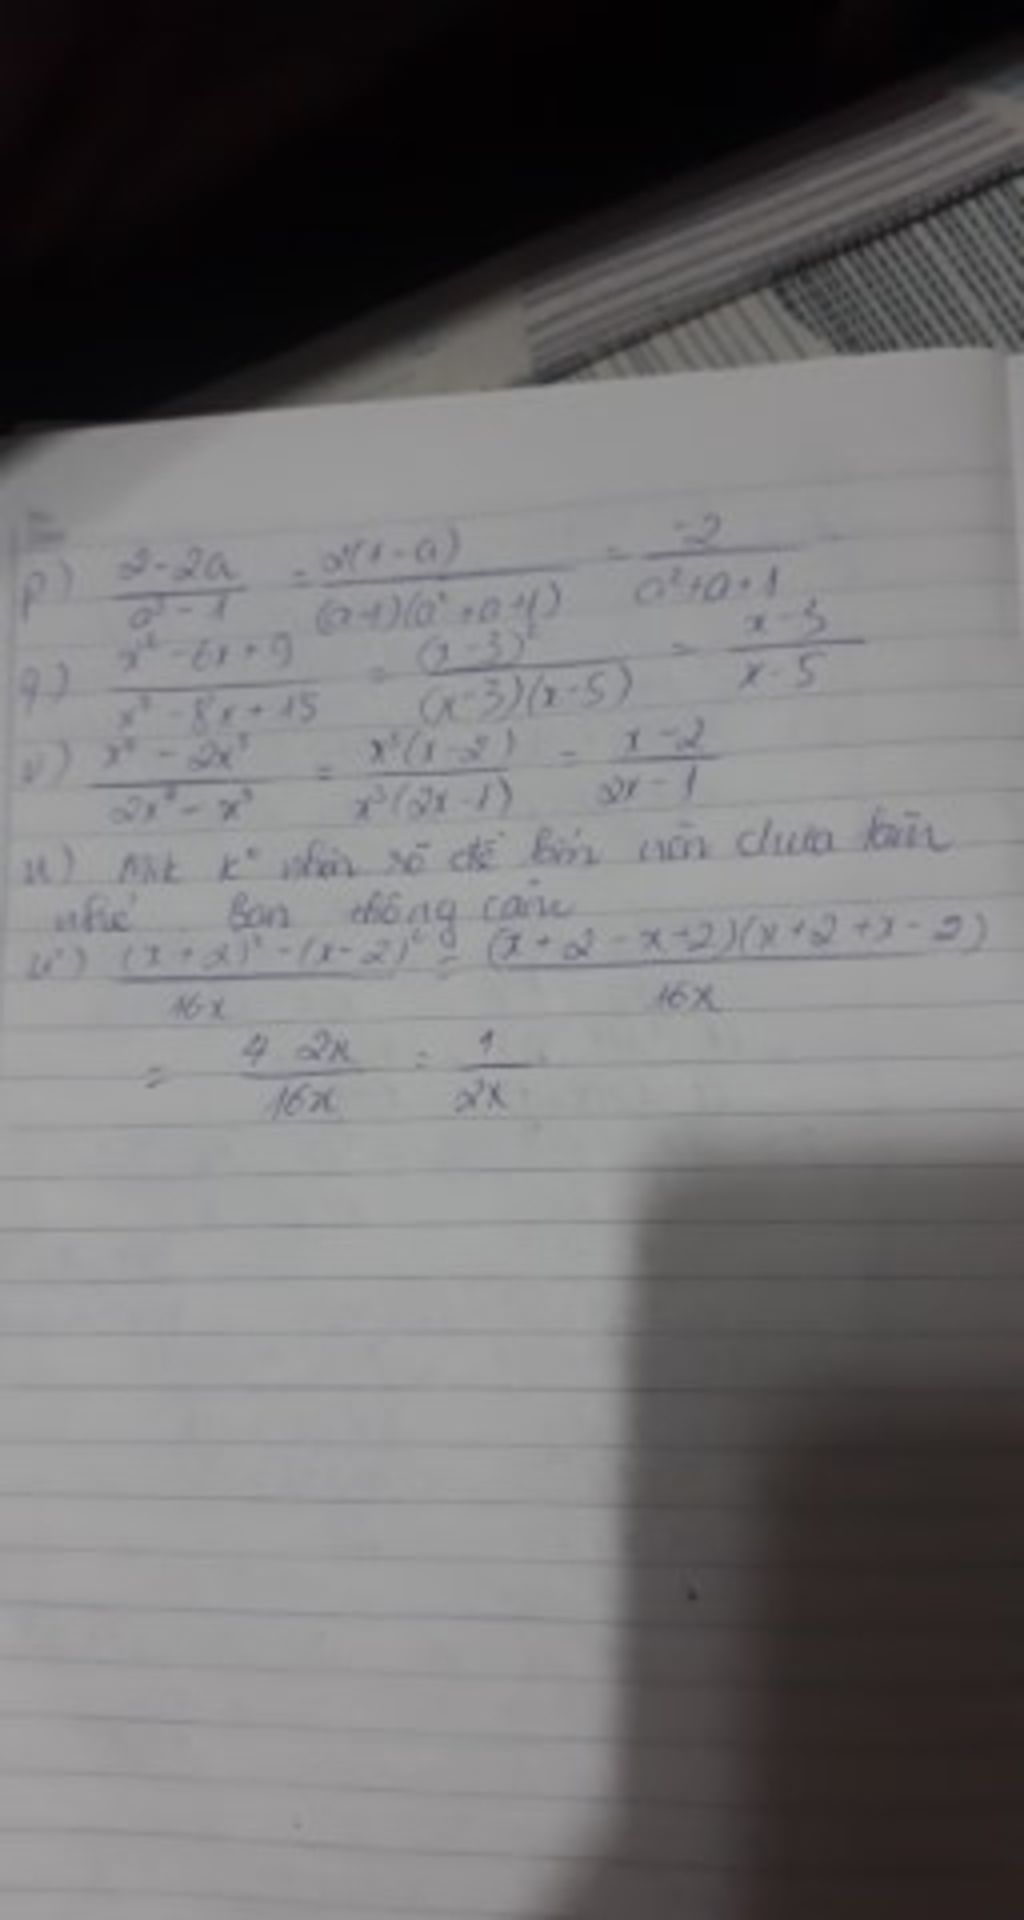 p) \frac{2-2a}{a³-1} = \frac{2(1-a)}{(a-1)(a²+a+1)} = \frac{-2}{a²+a+1}
q) \frac{x²-6x+9}{x²-8x+15} = \frac{(x-3)²}{(x-3)(x-5)} = \frac{x-3}{x-5}
\frac{x⁴-2x³}{2x⁴-x³} = \frac{x³(x-2)}{x³(2x-1)} = \frac{x-2}{2x-1}
u) đề chưa làm
Bạn thông cảm
\frac{(x+2)²-(x-2)²}{16x} = \frac{(x+2-x+2)(x+2+x-2)}{16x}
= \frac{4 2x}{16x} = \frac{1}{2x}